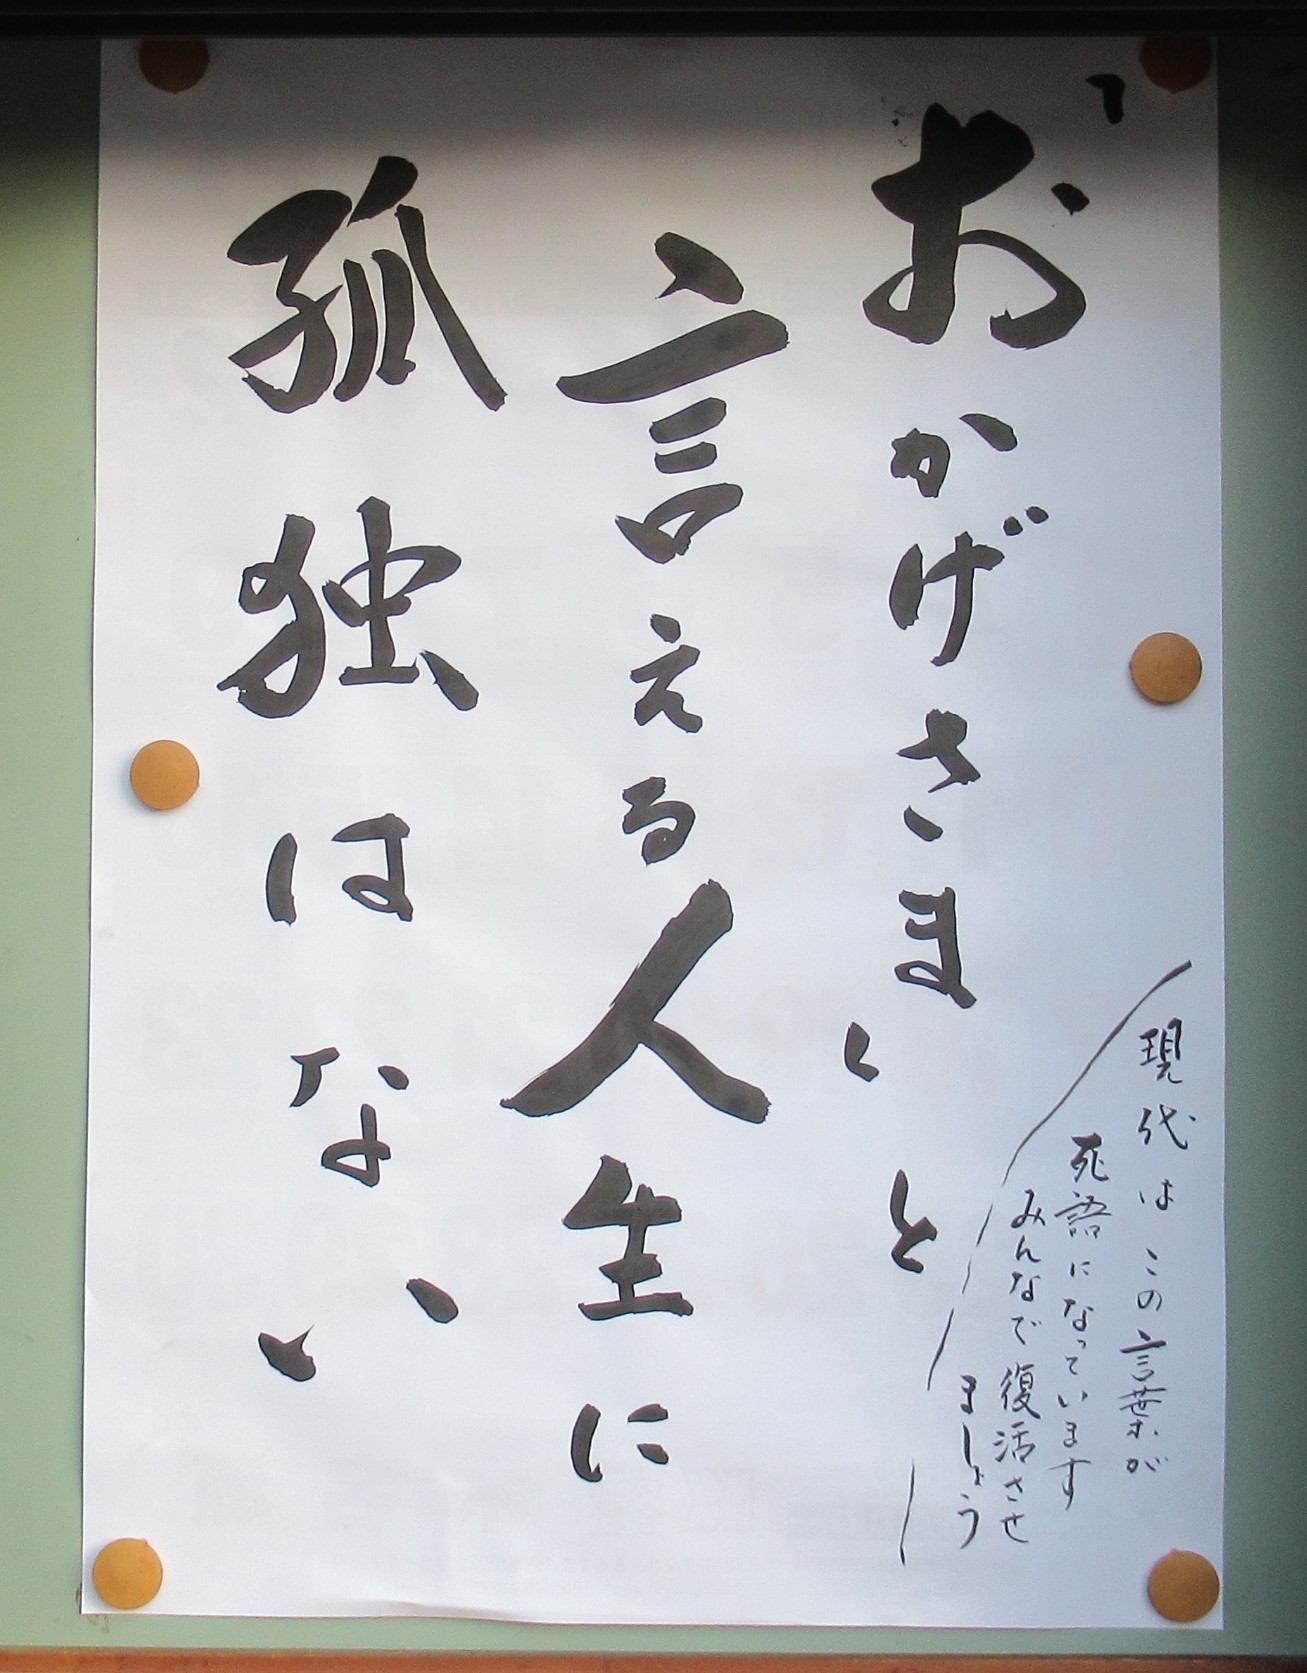 「おかげさま」と
言える人生に
孤独はない
現代はこの言葉が
死語になっています
みんなで復活させ
ましょう